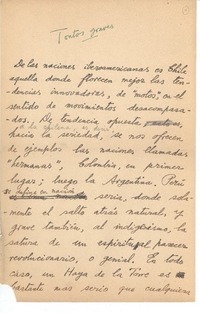 Tontos graves
De las naciones iberoamericanas es Chile
aquella donde florecen mejor las ten-
dencias innovadoras, de "motos", en el
sentido de movimientos desacompasa-
dos. De tendencia opuesta,
hacia la seriedad, se nos ofrecen
de ejemplos las naciones llamadas
"hermanas". Colombia, en primer
lugar; luego la Argentina. Perú
seria, donde
el salto atrás natural, y
grave también, al indigenismo, la
satura de un espíritu parecer
revolucionario, o genial. En todo
caso, un Haya de la Torre es
bastante mas serio que cualquiera